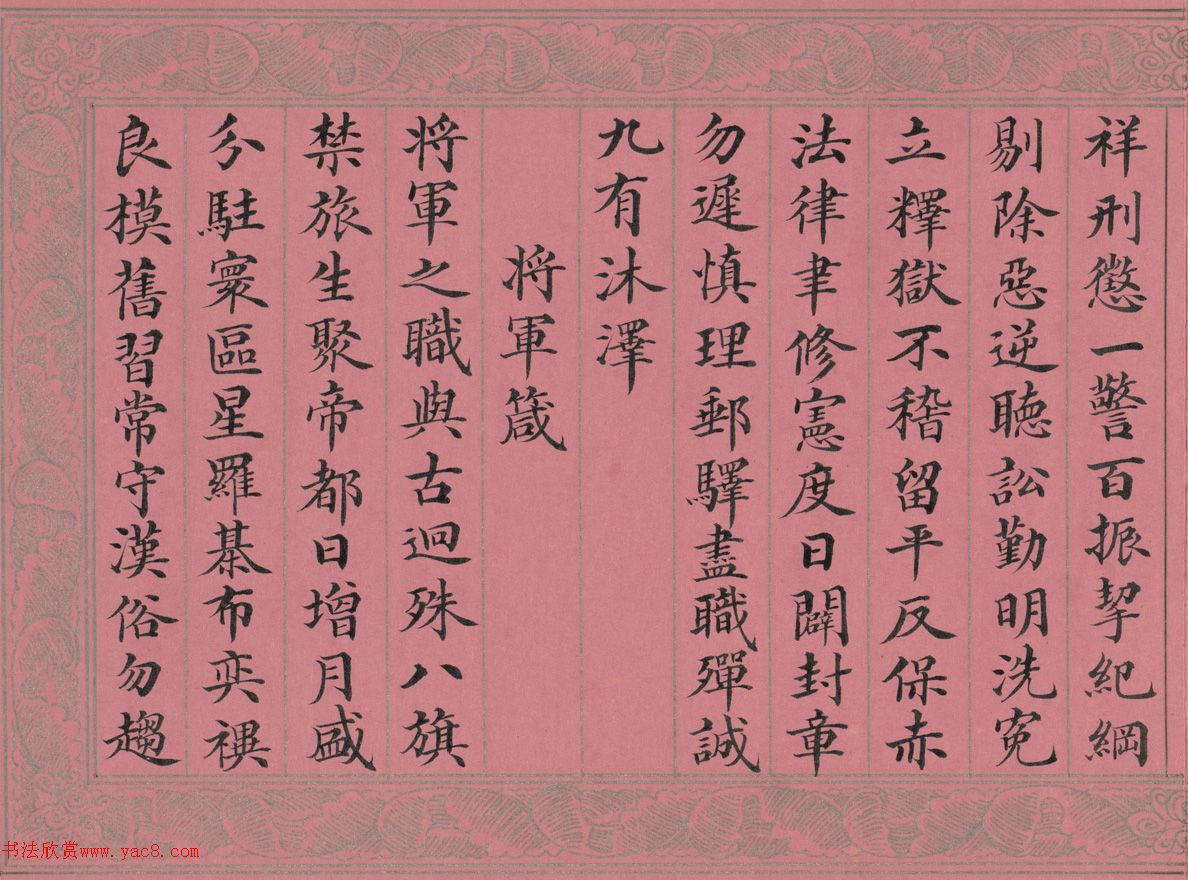 祥刑懲一警百振挈紀綱
剔除惡逆聽訟勤明洗冤
立釋獄不稽留平反保赤
法律聿修憲度日闢封章
勿遲慎理郵驛盡職殫誠
九有沐澤
将軍箴
将軍之職與古迥殊八旗
禁旅生聚帝都日增月盛
分駐寰區星羅棊布奕禩
良模舊習常守漢俗勿趨
书法欣赏www.yac8.com